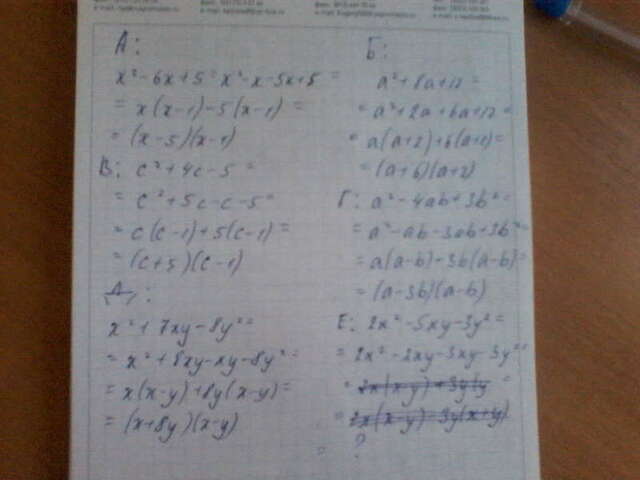 А:
x² - 6x + 5 = x² - x - 5x + 5 =
= x(x-1) - 5(x-1) =
= (x-5)(x-1)
В: c² + 4c - 5 =
= c² + 5c - c - 5 =
= c(c-1) + 5(c-1) =
= (c+5)(c-1)
Д:
x² + 7xy - 8y² =
= x² + 8xy - xy - 8y² =
= x(x-y) + 8y(x-y) =
= (x+8y)(x-y)
Б:
a² + 8a + 12 =
= a² + 2a + 6a + 12 =
= a(a+2) + 6(a+2) =
= (a+6)(a+2)
Г: a² - 4ab + 3b² =
= a² - ab - 3ab + 3b² =
= a(a-b) - 3b(a-b) =
= (a-3b)(a-b)
Е: 2x² - 5xy - 3y² =
= 2x² - 2xy - 3xy - 3y² =
= 2x(x-y) - 3y(y =
= 2x(x-y) - 3y(x+y)
?